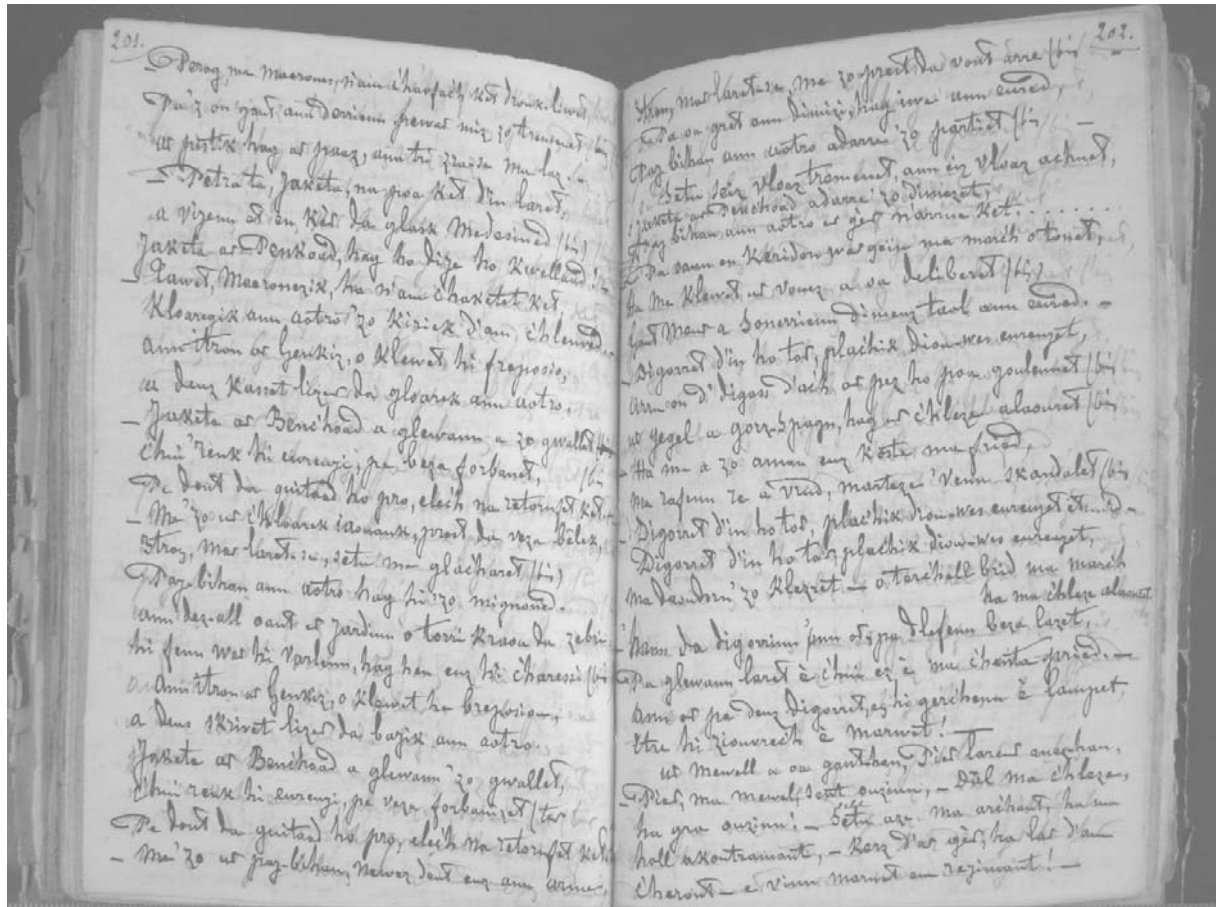 201.
— Perag, ma Maerones, n'am c'harfac'h ket drouk-livet, (bis
Pa'z on gant ann derrienn pewar miz zo tremenet (bis
ur pistik hag ar paaz, ann tri zra-se ma laz. —
— Petra'ta, Jaketa, na poa ket d'in laret,
a vizenn ât en kêr da glask Medesined (bis)
Jaketa ar Penkoad, hag ho dije ho kwellaad
— Tawet, Maeronezik, ha n'am c'haketet ket,
Kloaregik ann aotro 'zo kiriek d'am c'hlenved. —
ann itron ar Genkiz, o klewet hi frepozio,
a deuz kasset lizer da gloarek ann aotro,
— Jaketa ar Benc'hoad a glewann a zo gwallet (bis
C'hui 'renk hi eureuji, pe beza forbanet, (bis
Pe dont da guitaad ho pro, elec'h na retornfet ket. —
— Me 'zo ur c'hloarek iaouank, prest da veza belek,
Itron, mar laret-se, setu me glac'haret (bis)
Paz-bihan ann aotro hag hi 'zo mignoned —
ann dez-all oant er jardinn o torri kraou da zebri
hi fenn war hi varlenn, hag hen euz hi c'haressi (bis
Ann itron ar Genkiz, o klewet he breposiou,
a deus skrivet lizer da bazik ann aotro.
Jaketa ar Benc'hoad a glewann 'zo gwallet,
C'hui renk hi eureuji, pe veza forbanizet (ter
Pe dont da guitaad ho pro, elec'h na retornfet ket
— Me 'zo ur paz-bihan, newez deut euz ann arme,
202.
Itron, mar laret-se, me zo prest da vont arre (bis —
Pa oa gret ann dimizi, hag iwe ann eured,
Paz bihan ann aotro adarre 'zo partiet (bis —
Setu seiz vloaz tremenet, ann eiz vloaz achuet,
Jaketa ar Penc'hoad adarre 'zo dimezet,
Paz bihan ann aotro er gêr n'arrue ket. . . . . . . .
Pa oann en Keridon war gein ma marc'h o tonet,
Ha me klewet ur vouez a oa deliberet (bis)
gant Mouez a sonerrienn dimeuz taol ann eured. —
— Digorret d'in ho tor, plac'hik diou-wes eureujet,
Arru on d'digass d'ac'h ar pez ho poa goulennet (bis
ur gegel a gorz-Spagn, hag ur c'hleze alaouret (bis
— Ha me a zo aman euz koste ma fried,
Me rafenn ze a vad, marteze 'venn skandalet (bis
— Digorret d'in ho tor, plac'hik diou-wes eureujet
Digorret d'in ho tor, plac'hik diou-wes eureujet,
Ma daoudorn 'zo klezret — o terc'hell brid ma marc'h
ha ma c'hleze alaouret
— Mont da digorrinn 'nn or, pa dlefenn beza lazet,
Pa glewann laret ê c'hui ez ê ma c'henta pried. —
Ann or pa deuz digorret, en hi gerc'henn ê lampet,
Etre hi ziouvrec'h ê marwet! —
ur Mewell a oa gant-han, Pier larer anezhan,
— Pier, ma mewel, sent ouzinn, — Dal ma c'hleze,
ha gra ouzinn! — Setu aze ma arc'hant, ha ma
holl akoutramant, — Kerz d'ar gêr, ha lar d'am
c'herent — e vinn marwet en rejimant! —